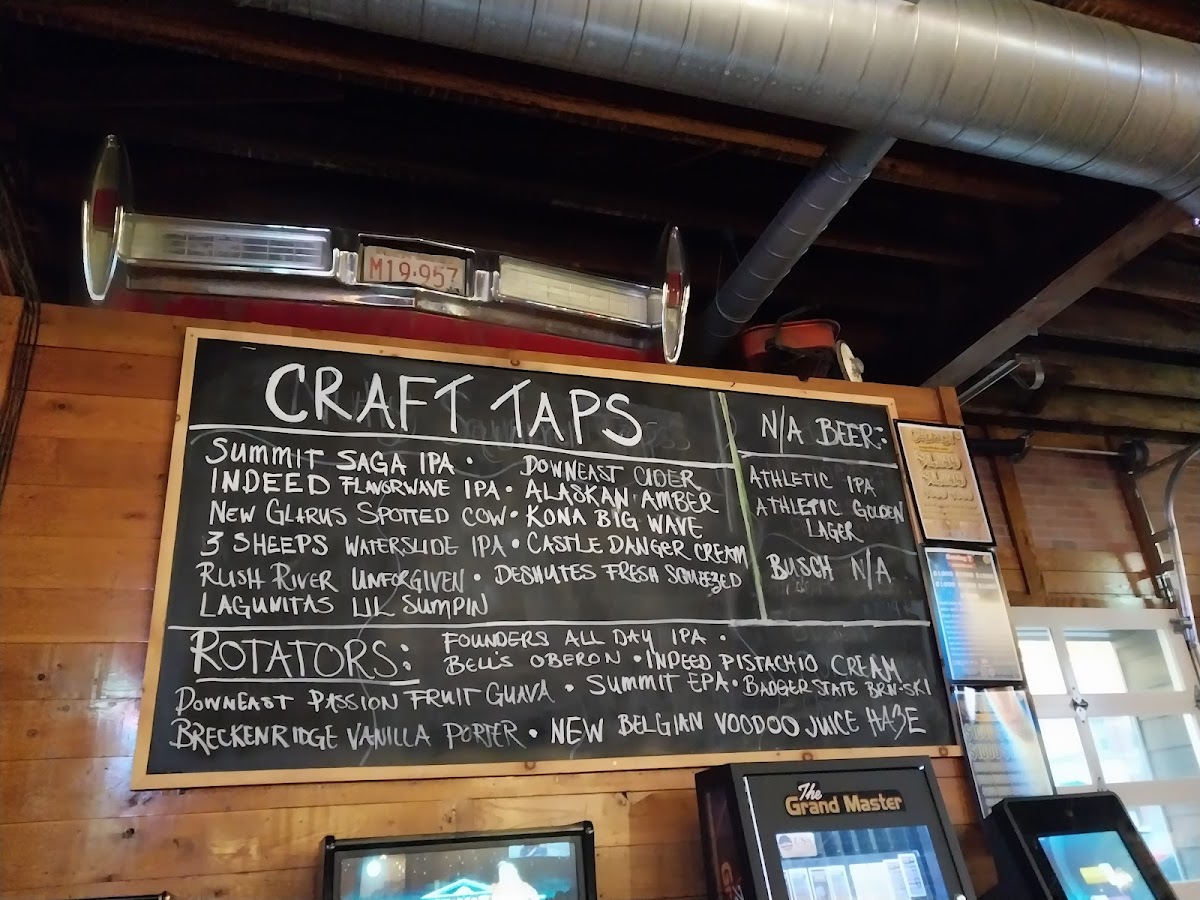 M19·957
CRAFT TAPS
SUMMIT SAGA IPA · DOWNEAST CIDER
INDEED FLAVORWAVE IPA · ALASKAN AMBER
NEW GLARUS SPOTTED COW · KONA BIG WAVE
3 SHEEPS WATERSLIDE IPA · CASTLE DANGER CREAM
RUSH RIVER UNFORGIVEN · DESHUTES FRESH SQUEEZED
LAGUNITAS LIL SUMPIN
N/A BEER:
ATHLETIC IPA
ATHLETIC GOLDEN
LAGER
BUSCH N/A
ROTATORS:
FOUNDERS ALL DAY IPA ·
BELL'S OBERON · INDEED PISTACHIO CREAM
DOWNEAST PASSION FRUIT GUAVA · SUMMIT EPA · BADGER STATE BRN-SKI
BRECKENRIDGE VANILLA PORTER · NEW BELGIAN VOODOO JUICE HAZE
The
Grand Master